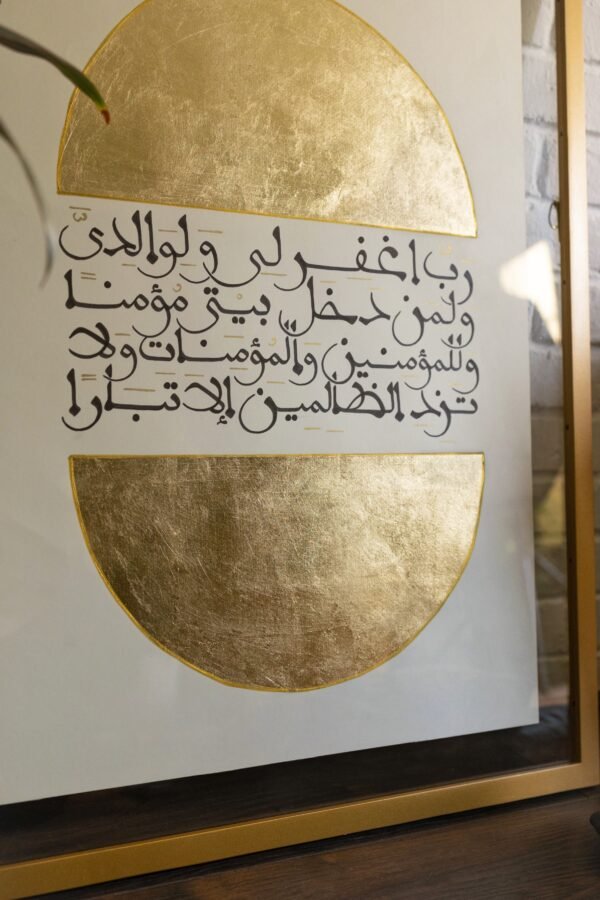 رب اغفر لي ولوالدي
ولمن دخل بيتي مؤمنا
وللمؤمنين والمؤمنات ولا
تزد الظالمين إلا تبارا